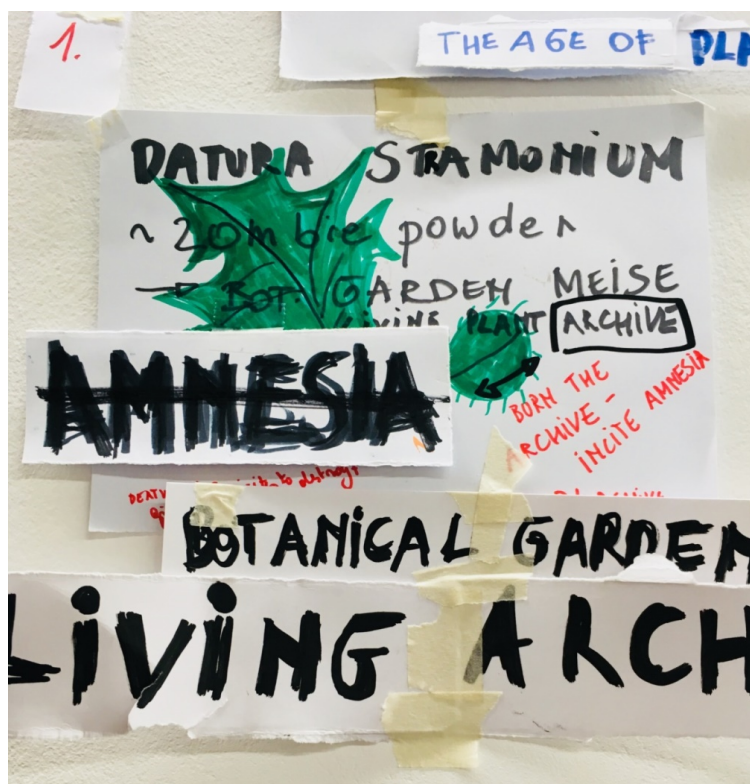 1.
THE AGE OF PLA
DATURA STRAMONIUM
~ zombie powder
→ BOT. GARDEN MEISE
LIVING PLANT ARCHIVE
AMNESIA
BORN THE
ARCHIVE -
INCITE AMNESIA
to destroy?
BOTANICAL GARDEN
LIVING ARCH